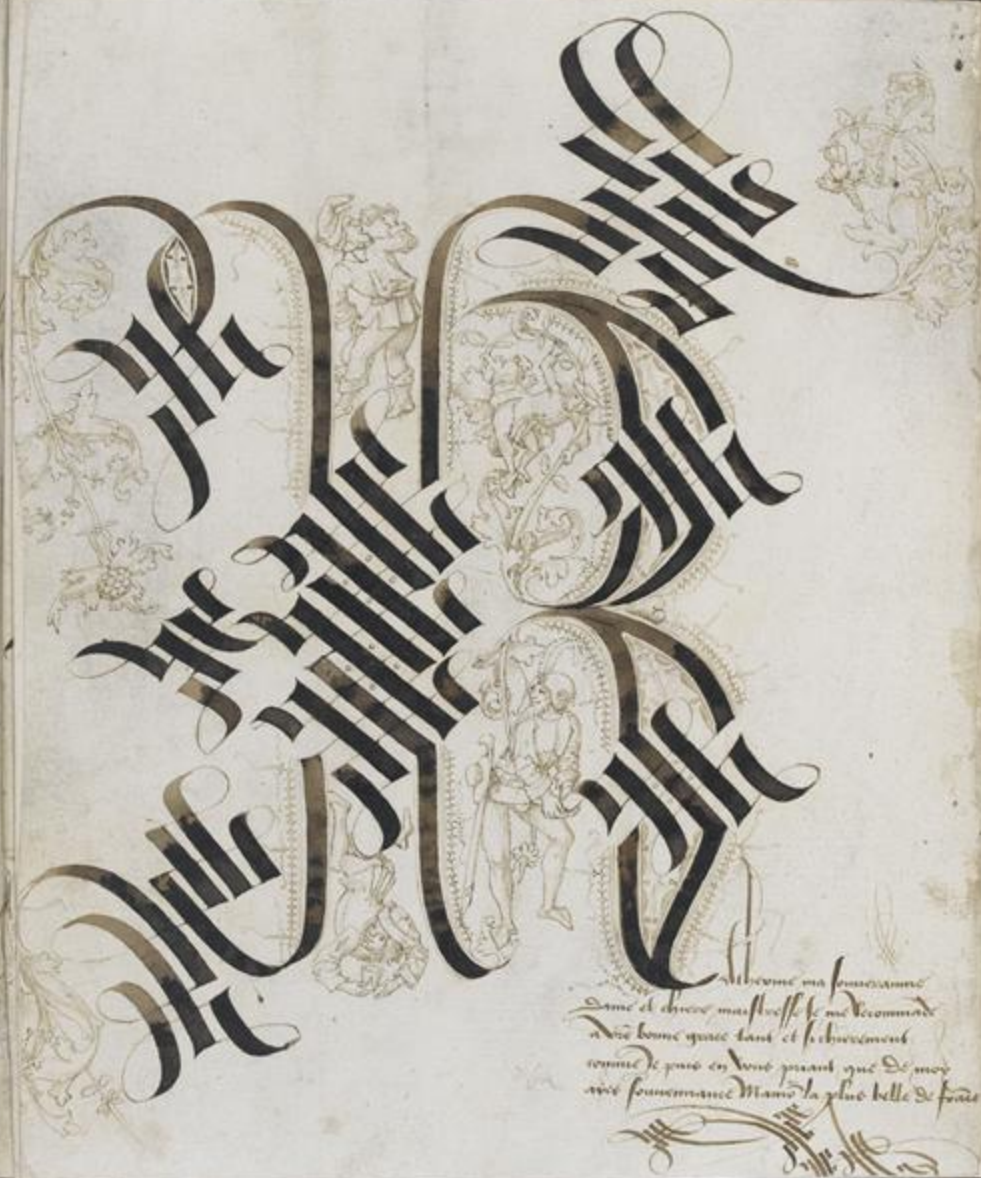 K
Katherine ma souveraine
dame et chiere maistresse je me recommande
a vre bonne grace tant et si chierement
comme je puis en vous priant que de moy
aies souvenance Mamie la plus belle de